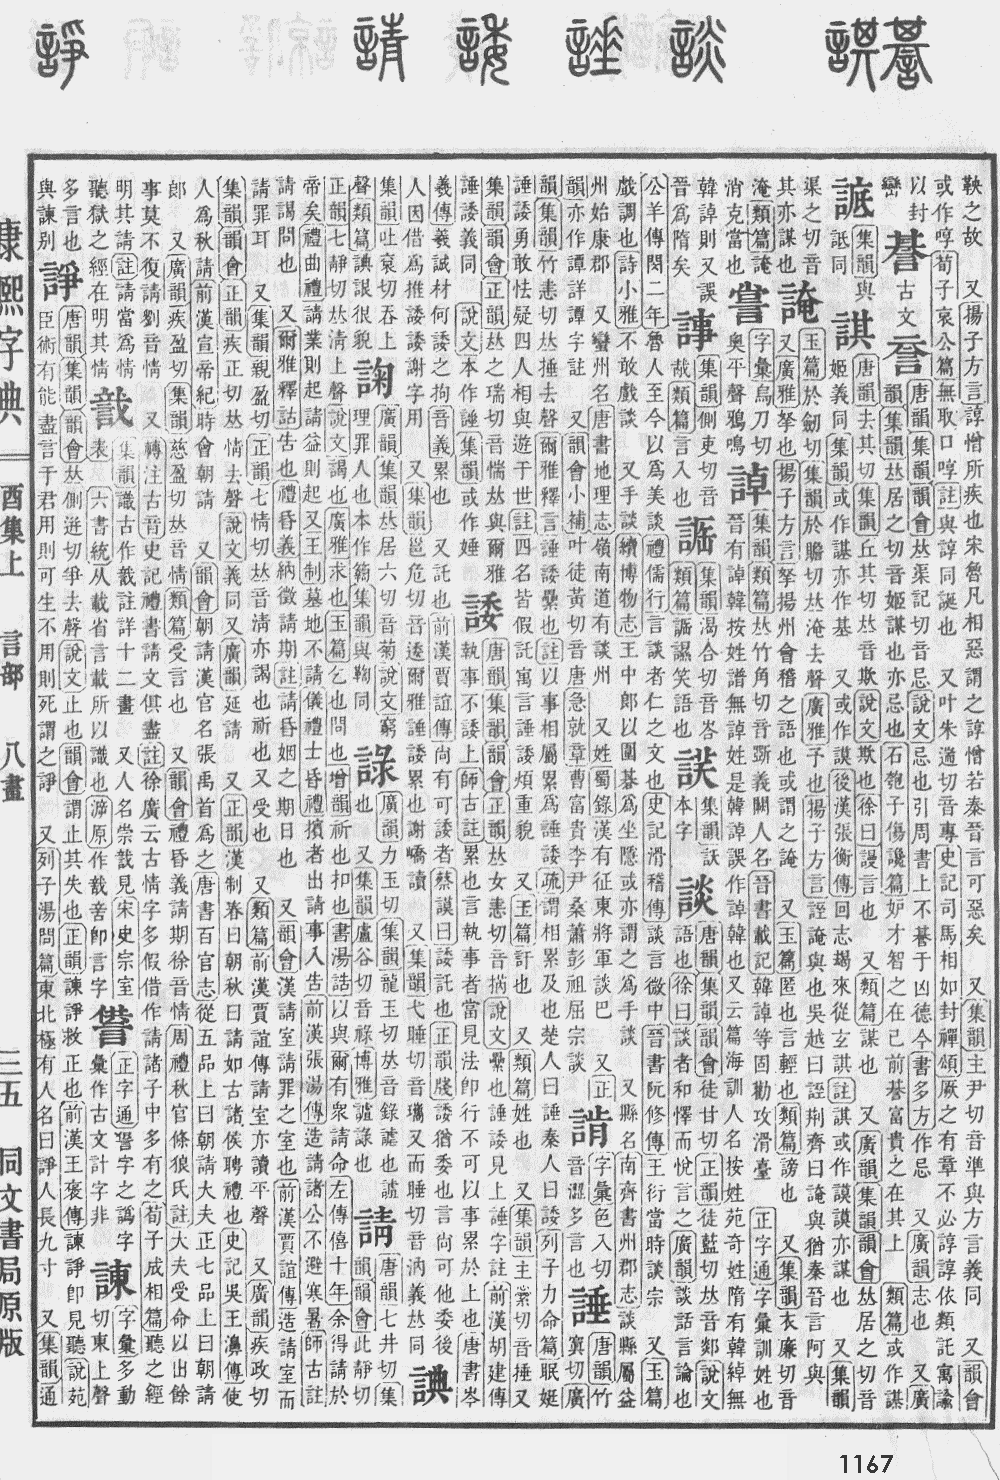 鞅之故　又揚子方言諄憎所疾也宋魯凡相惡謂之諄憎若秦晉言可惡矣　又集韻主尹切音準與方言義同　又韻會
或作啍荀子哀公篇無取口啍註與諄同誕也　又叶朱遄切音專史記司馬相如封禪頌厥之有章不必諄諄依類託寓諭
以封巒
諅古文䛊唐韻集韻韻會𠀤渠記切音忌說文忌也引周書上不諅于凶德今書多方作忌　又廣韻志也　又廣
韻集韻𠀤居之切音姬謀也亦忌也石匏子傷讒篇妒才智之在己前諅富貴之在其上　類篇或作諆
䛄集韻與詆同
諆唐韻去其切集韻丘其切𠀤音欺說文欺也徐曰謾言也　又類篇謀也　又廣韻集韻韻會𠀤居之切音
姬義同集韻或作諶亦作基　又或作謨後漢張衡傳回志朅來從玄諆註諆或作謨謨亦謀也　又集韻
渠之切音其亦謀也
䛳玉篇於劒切集韻於贍切𠀤淹去聲廣雅予也揚子方言誣䛳與也吳越曰誣荆齊曰䛳與猶秦晉言阿與
又廣雅拏也揚子方言拏揚州會稽之語也或謂之䛳　又玉篇匿也言輕也類篇謗也　又集韻衣廉切音
淹類篇䛳消克當也
字彙烏刀切奧平聲鴉鳴
諄集韻類篇𠀤竹角切音斲義闕人名晉書載記韓諄等固勸攻滑臺　正字通字彙訓姓也
晉有諄韓按姓譜無諄姓是韓諄誤作諄韓也又云篇海訓人名按姓苑奇姓隋有韓綽無
韓諄則又誤晉爲隋矣
集韻側吏切音胾類篇言入也
集韻渴合切音峇類篇謕譅笑語也
集韻訞本字
談唐韻集韻韻會徒甘切正韻徒藍切𠀤音郯說文語也徐曰談者和懌而悅言之廣韻談話言論也
公羊傳閔二年魯人至今以爲美談禮儒行言談者仁之文也史記滑稽傳談言微中晉書阮修傳王衍當時談宗　又玉篇
戲調也詩小雅不敢戲談　又手談續博物志王中郎以圍棊爲坐隱或亦謂之爲手談　又縣名南齊書州郡志談縣屬益
州始康郡　又蠻州名唐書地理志嶺南道有談州　又姓蜀錄漢有征東將軍談巴　又正
韻亦作譚詳譚字註　又韻會小補叶徒黃切音唐急就章曹富貴李尹桑蕭彭祖屈宗談
字彙色入切音澀多言也
諈唐韻竹寘切廣
韻集韻竹恚切𠀤捶去聲爾雅釋言諈諉纍也註以事相屬累爲諈諉疏謂相累及也楚人曰諈秦人曰諉列子力命篇眠娗
諈諉勇敢怯疑四人相與遊于世註四名皆假託寓言諈諉煩重貌　又玉篇託也　又類篇姓也　又集韻主橤切音捶又
集韻韻會正韻𠀤之瑞切音惴𠀤與爾雅諈諉義同　說文本作諈集韻或作娷
諉唐韻集韻韻會正韻𠀤女恚切音捼說文纍也諈諉見上諈字註前漢胡建傳
執事不諉上師古註累也言執事者當見法卽行不可以事累於上也唐書岑
羲傳羲誠材何諉之拘吾義累也　又託也前漢賈誼傳尚有可諉者蔡謨曰諉託也正韻戔諉猶委也言尚可他委後
人因借爲推諉諉謝字用　又集韻邕危切音逶爾雅諈諉累也謝嶠讀　又集韻弋睡切音瓗又而睡切音汭義𠀤同
集韻吐衮切吞上聲類篇䛎誏很貌
諊廣韻集韻𠀤居六切音菊說文窮理罪人也本作𥷚集韻與鞫同
廣韻力玉切集韻龍玉切𠀤音錄謔也　又集韻盧谷切音祿博雅謯諑也
請唐韻七井切集韻韻會此靜切
正韻七靜切𠀤清上聲說文謁也廣雅求也玉篇乞也問也增韻祈也扣也書湯誥以與爾有衆請命左傳僖十年余得請於
帝矣禮曲禮請業則起請益則起又王制墓地不請儀禮士昏禮擯者出請事入告前漢張湯傳造請諸公不避寒暑師古註
請謁問也　又爾雅釋詁告也禮昏義納徵請期註請昏姻之期日也　又韻會漢請室請罪之室也前漢賈誼傳造請室而
請罪耳　又集韻親盈切正韻七情切𠀤音淸亦謁也祈也又受也　又類篇前漢賈誼傳請室亦讀平聲　又廣韻疾政切
集韻韻會正韻疾正切𠀤情去聲說文義同又廣韻延請　又正韻漢制春日朝秋曰請如古諸侯聘禮也史記吳王濞傳使
人爲秋請前漢宣帝紀時會朝請　又韻會朝請漢官名張禹首爲之唐書百官志從五品上曰朝請大夫正七品上曰朝請
郎　又廣韻疾盈切集韻慈盈切𠀤音情類篇受言也　又韻會禮昏義請期徐音情周禮秋官條狼氏註大夫受命以出餘
事莫不復請劉音情　又轉注古音史記禮書請文俱盡註徐廣云古情字多假借作請諸子中多有之荀子成相篇聽之經
明其請註請當爲情
聽獄之經在明其情
集韻識古作㦰註詳十二畫　又人名崇㦰見宋史宗室
表　六書統从載省言載所以識也㴑原作㦰㖕卽言字
正字通讐字之譌字彙作古文計字非
諫字彙多動切東上聲
多言也
諍唐韻集韻韻會𠀤側迸切爭去聲說文止也韻會謂止其失也正韻諫諍救正也前漢王褒傳諫諍卽見聽說苑
臣術有能盡言于君用則可生不用則死謂之諍　又列子湯問篇東北極有人名曰諍人長九寸　又集韻通
與諫別
康熙字典　酉集上　言部　八畫　三五　同文書局原版
1167